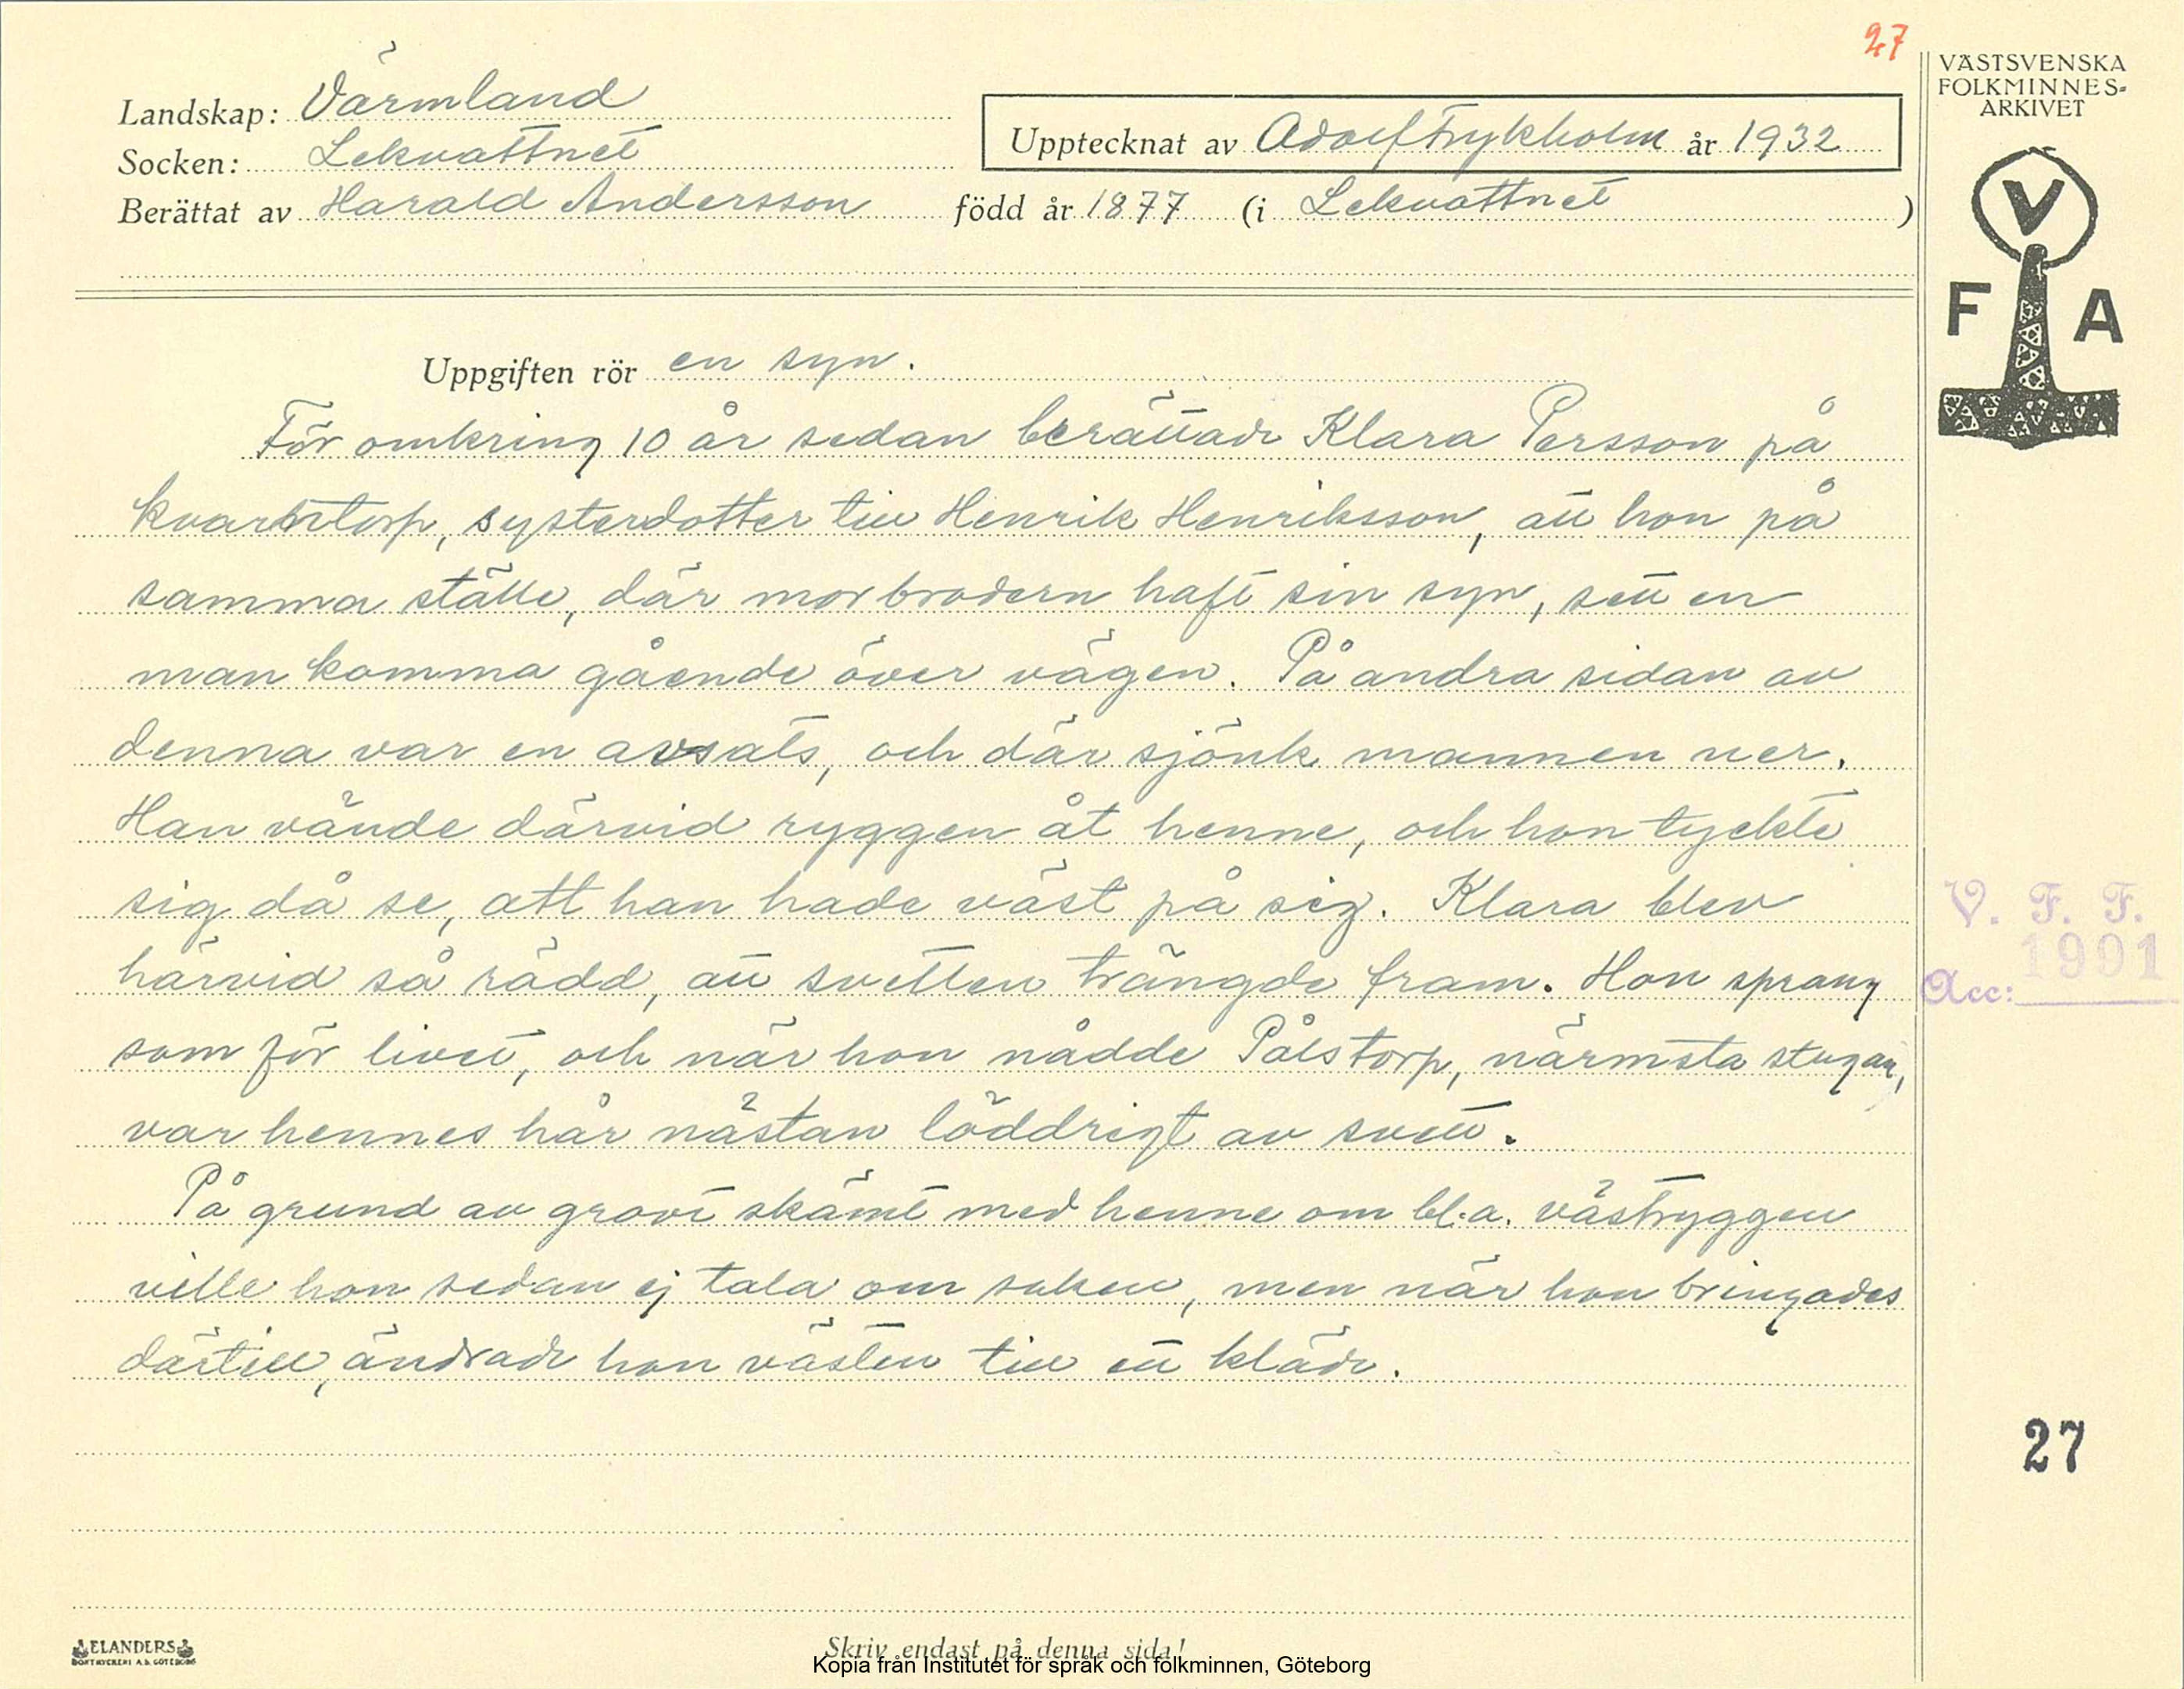 27
VÄSTSVENSKA
FOLKMINNES-
ARKIVET
Landskap: Värmland
Socken: Lekvattnet
Upptecknat av Adolf Frykholm år 1932
Berättat av Harald Andersson född år 1877 (i Lekvattnet )
V
F A
Uppgiften rör en syn.
För omkring 10 år sedan berättade Klara Persson på
kvarntorp, systerdotter till Henrik Henriksson, att hon på
samma ställe, där morbrodern haft sin syn, sett en
man komma gående över vägen. På andra sidan av
denna var en avsats, och där sjönk mannen ner.
Han vände därvid ryggen åt henne, och hon tyckte
sig då se, att han hade väst på sig. Klara blev
härvid så rädd, att svetten trängde fram. Hon sprang
som för livet, och när hon nådde Pålstorp, närmsta stugan,
var hennes hår nästan löddrigt av svett.
På grund av grovt skämt med henne om bl.a. västryggen
ville hon sedan ej tala om saken, men när hon tvingades
därtill, ändrade hon västen till ett kläde.
V. F. F.
1991
Acc:
27
ELANDERS
BOKTRYCKERI A.B. GÖTEBORG
Skriv endast på denna sida!
Kopia från Institutet för språk och folkminnen, Göteborg